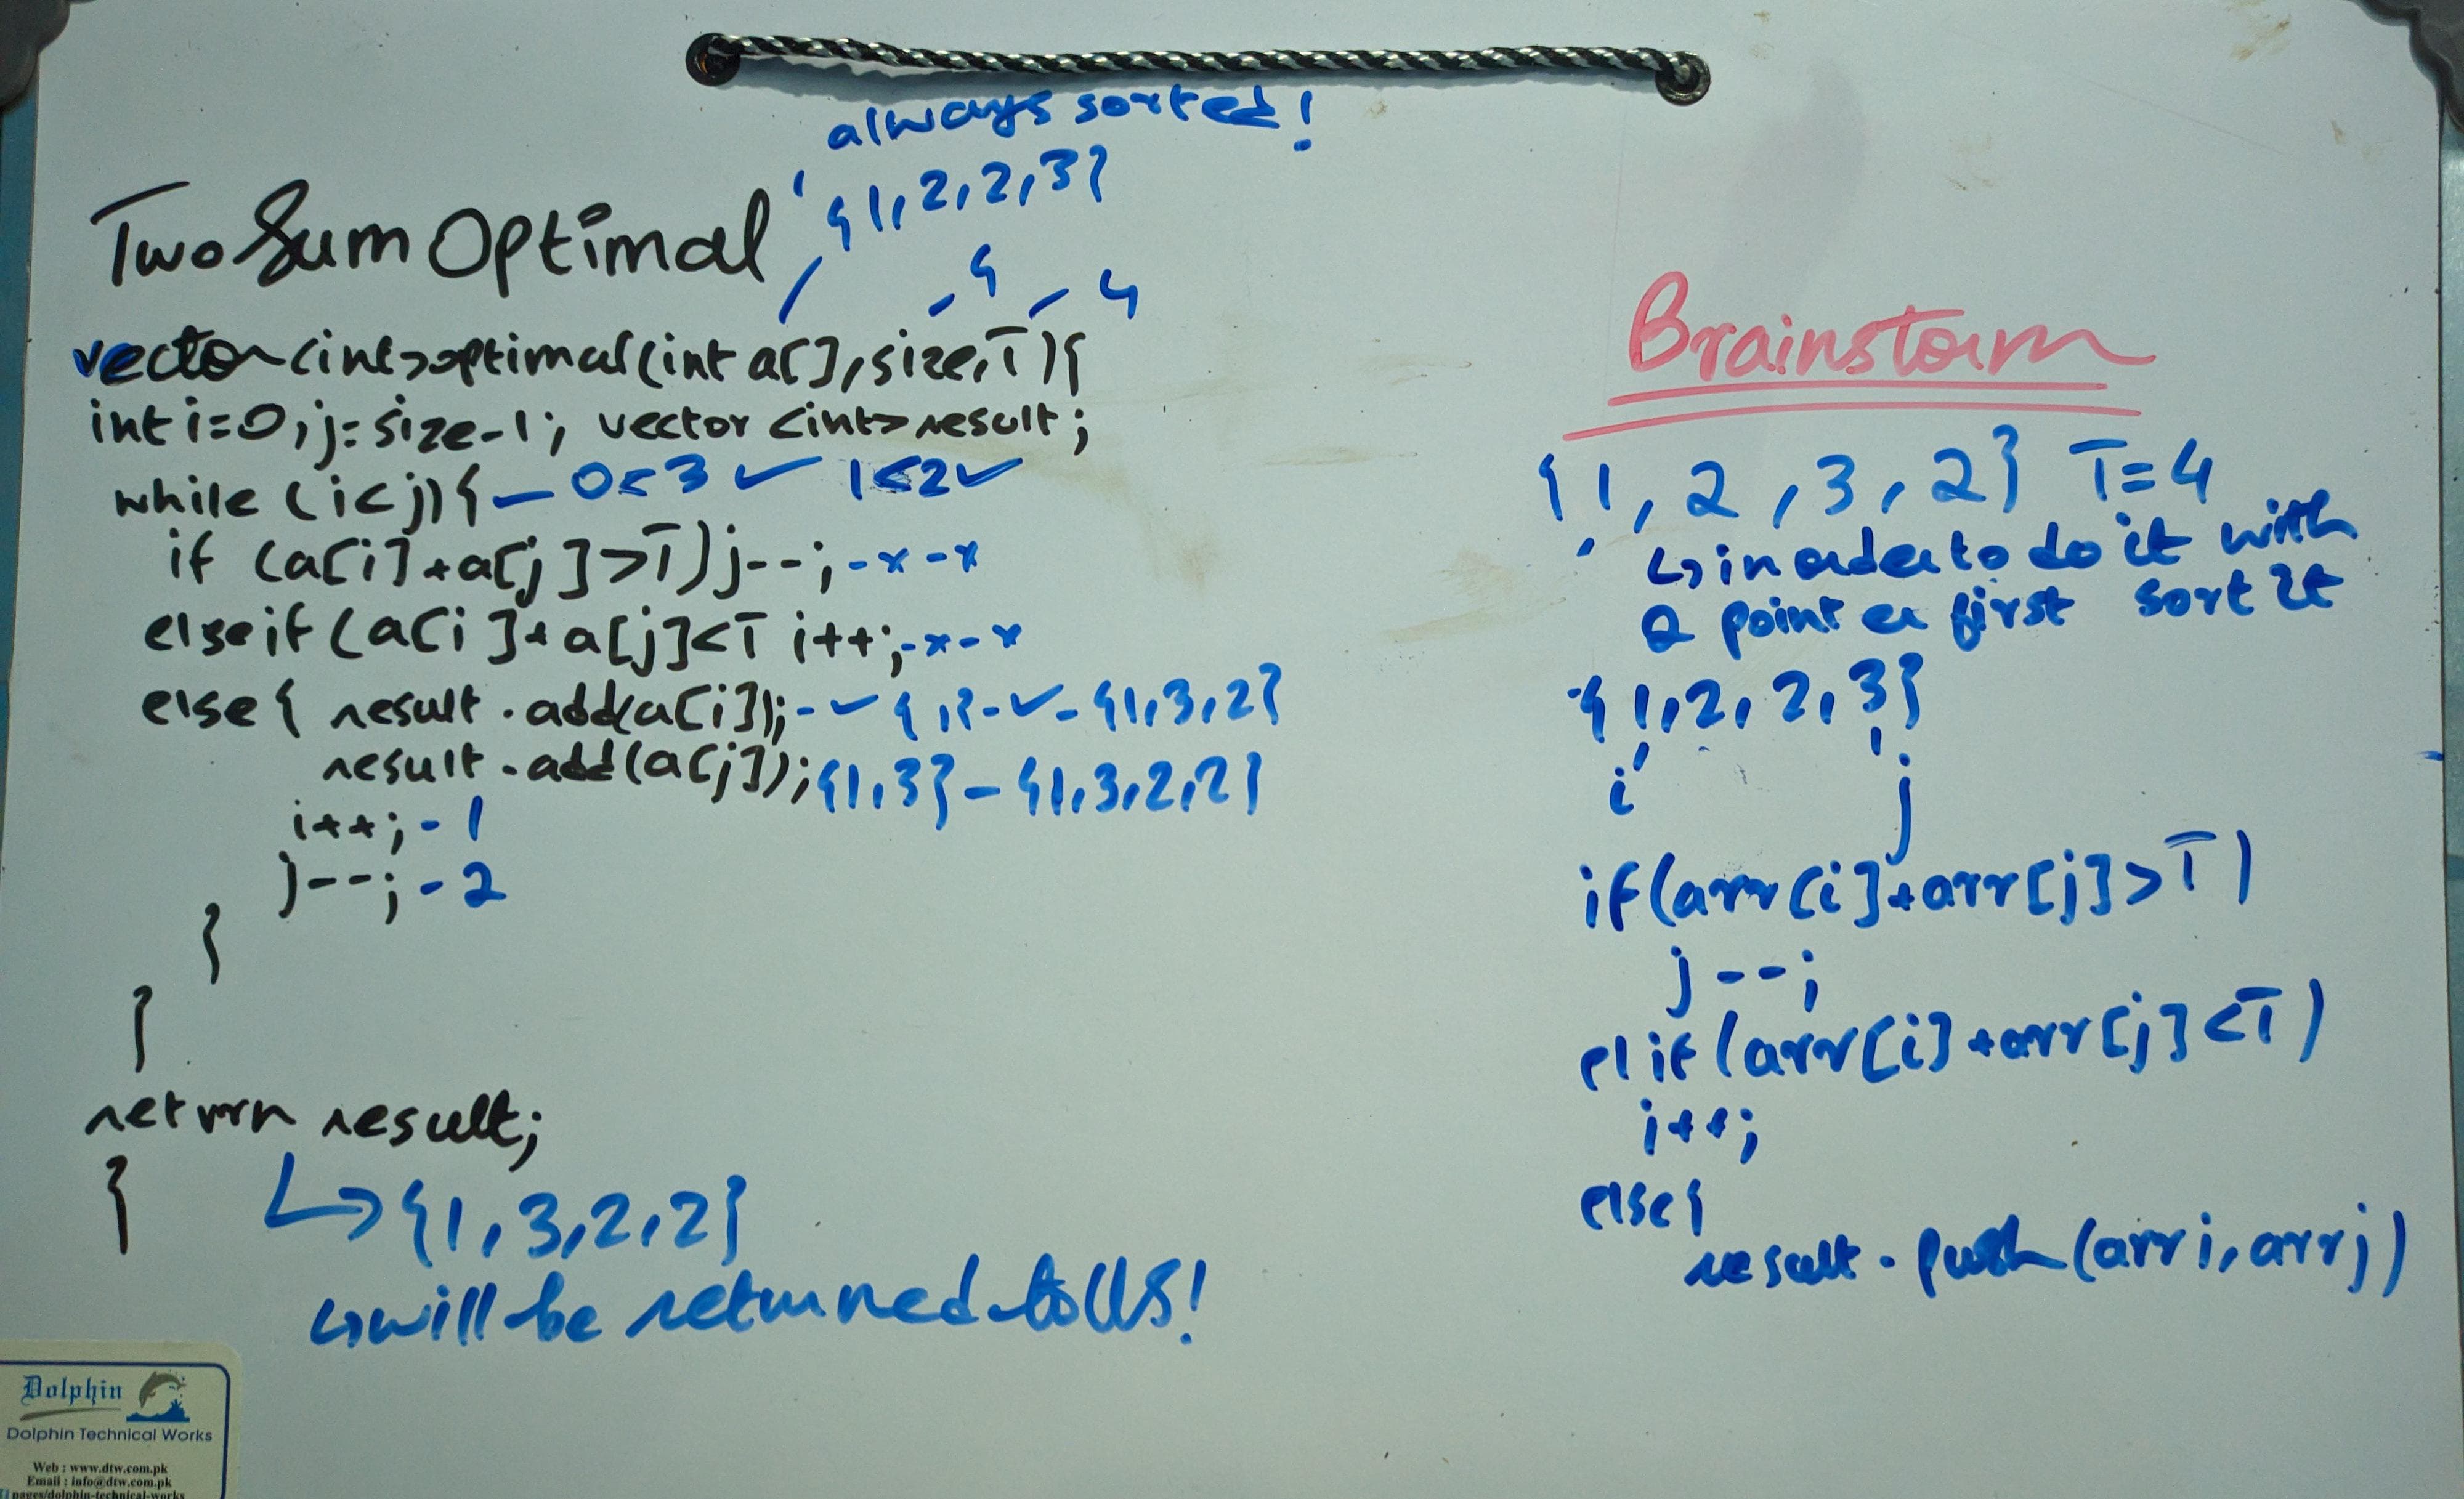 always sorted!
{1,2,2,3}
Two Sum Optimal
4 4
vector<int>optimal(int a[],size,T){
int i=0,j=size-1; vector<int>result;
while (i<j){ - 0<3 ✓ 1<2 ✓
if (a[i]+a[j]>T)j--; -x -x
else if (a[i]+a[j]<T i++; -x -x
else{ result.add(a[i]); - ✓ {1} - ✓ - {1,3,2}
result.add(a[j]); {1,3} - {1,3,2,2}
i++; - 1
j--; - 2
}
}
return result;
}
↳ {1,3,2,2}
↳ will be returned to US!
Brainstorm
{1,2,3,2} T=4
↳ in order to do it with
2 pointer first sort it
{1,2,2,3}
i j
if(arr[i]+arr[j]>T)
j--;
elif(arr[i]+arr[j]<T)
i++;
else{
result.push(arri,arrj)
Dolphin
Dolphin Technical Works
Web : www.dtw.com.pk
Email : info@dtw.com.pk
pages/dolphin-technical-works